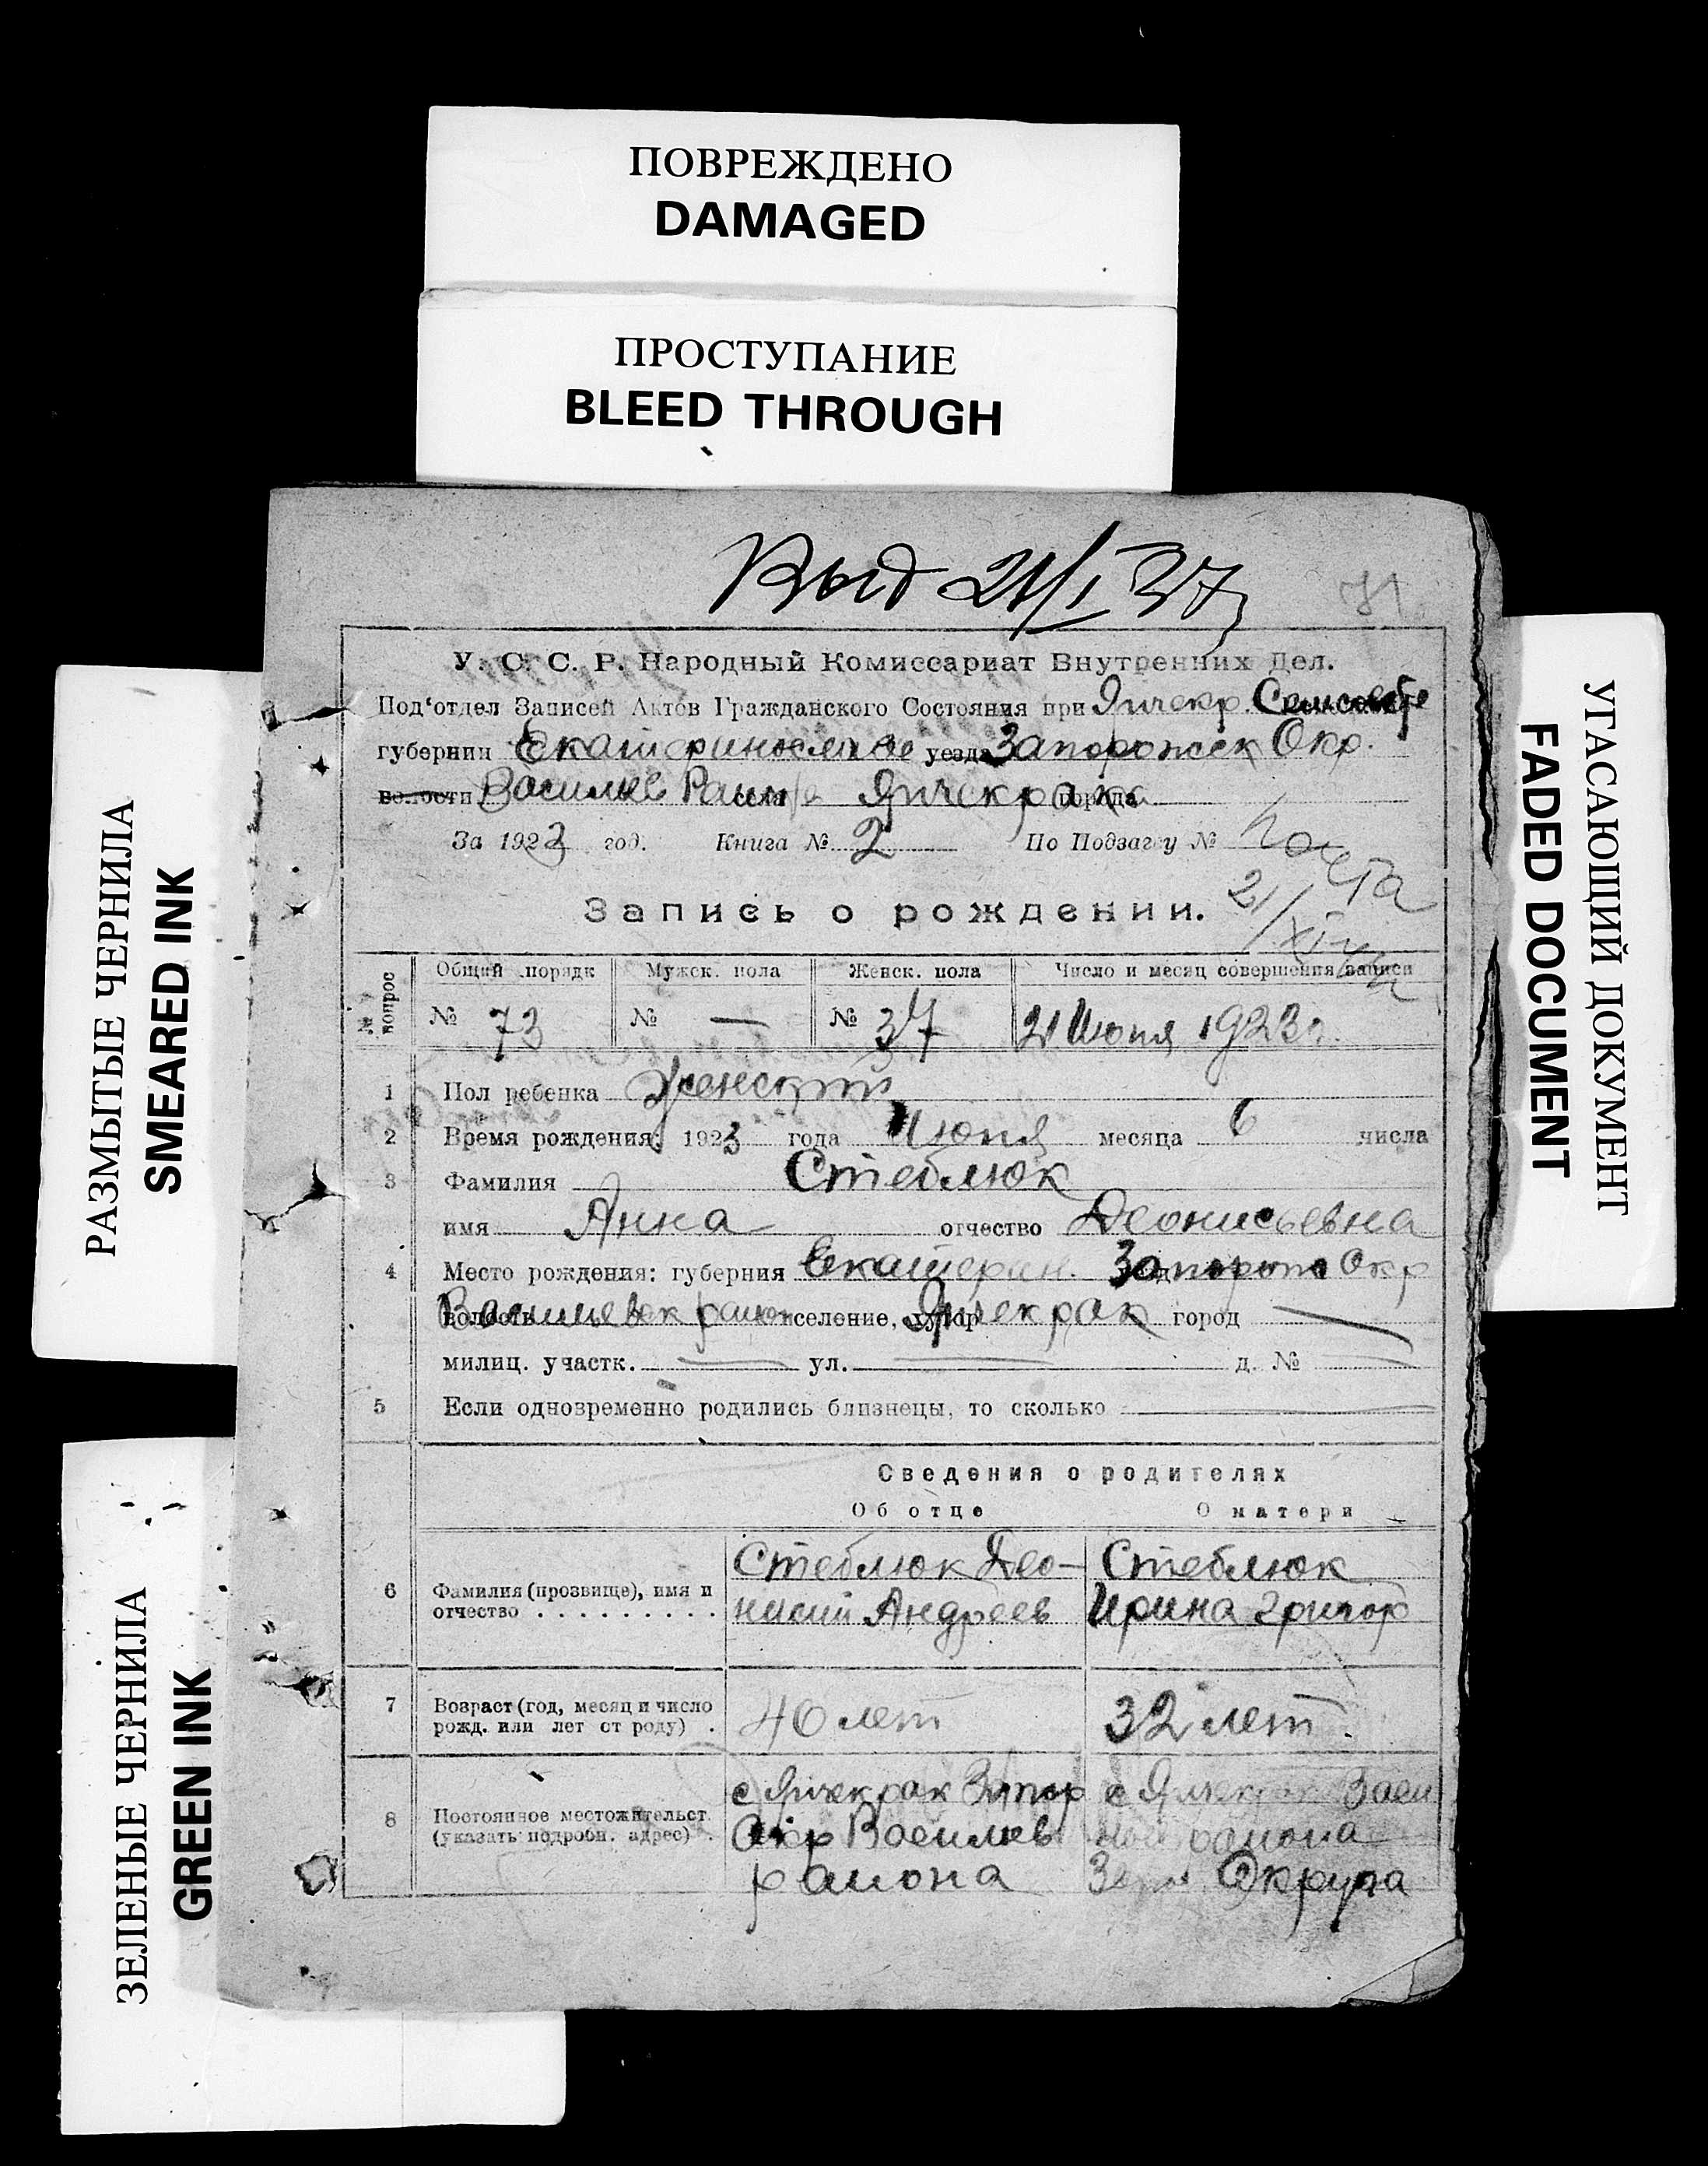 ПОВРЕЖДЕНО
DAMAGED
ПРОСТУПАНИЕ
BLEED THROUGH
РАЗМЫТЫЕ ЧЕРНИЛА
SMEARED INK
ЗЕЛЕНЫЕ ЧЕРНИЛА
GREEN INK
УГАСАЮЩИЙ ДОКУМЕНТ
FADED DOCUMENT
Выд 21/I 37
У. С. С. Р. Народный Комиссариат Внутренних Дел.
Под‘отдел Записей Актов Гражданского Состояния при Янчекр. Сельсовете
губернии Екатеринославской уезда Запорожск Окр.
волости Василев Район села Янчекрак города
За 1923 год. Книга № 2 По Подзагсу №
21/XI
Запись о рождении.
№ вопрос Общий порядк Мужск. пола Женск. пола Число и месяц совершения записи
№ 73 № — № 37 21 Июня 1923 г.
1 Пол ребенка Женский
2 Время рождения: 1923 года Июня месяца 6 числа
3 Фамилия Стеблюк
имя Анна отчество Деонисьевна
4 Место рождения: губерния Екатерин. Запорож Окр
волость Васильевск район селение, хутор Янчекрак город —
милиц. участк. — ул. — д. № —
5 Если одновременно родились близнецы, то сколько —
Сведения о родителях
Об отце О матери
6 Фамилия (прозвище), имя и отчество Стеблюк Део-
нисий Андреев
Стеблюк
Ирина Григор
7 Возраст (год, месяц и число рожд. или лет от роду) 40 лет 32 лет.
8 Постоянное местожительст. (указать подробн. адрес) с Янчекрак Запор
Окр Василев
района
с Янчекрак Васи
района
Округа